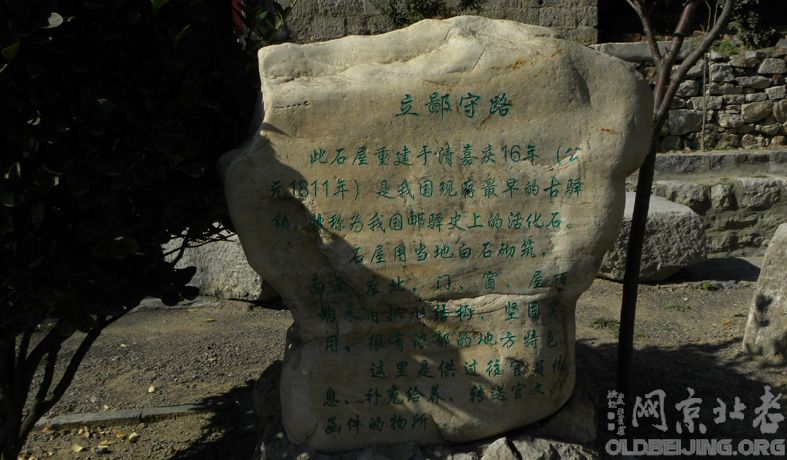 立鄙守路
此石屋重建于清嘉庆16年（公
元1811年）是我国现存最早的古驿
铺，被称为我国邮驿史上的活化石。
石屋用当地白石砌筑，
面南座北，门、窗、屋顶
均采用拱形结构，坚固实
用，很有浓郁的地方特色
这里是供过往官员休
息、补充给养、转送官文
函件的场所。
网京北老
OLDBEIJING.ORG